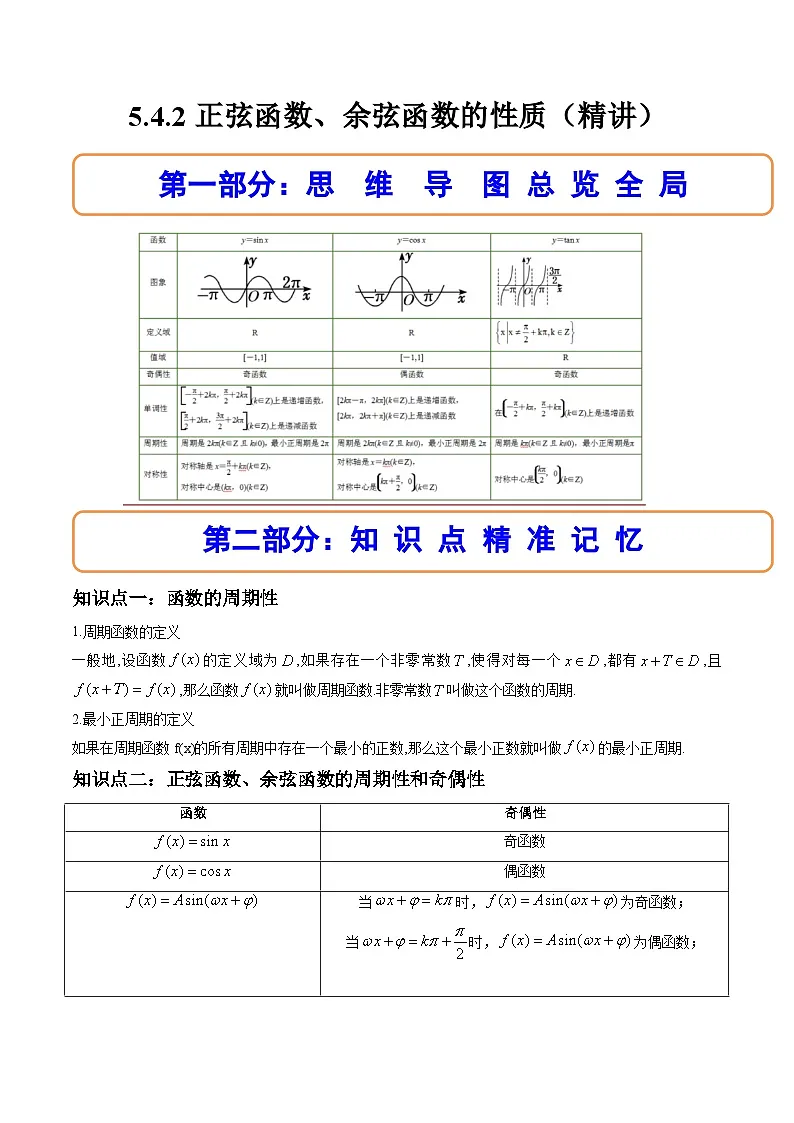 5.4.2 正弦函数、余弦函数的性质（精讲）
第一部分：思 维 导 图 总 览 全 局
函数 y＝sin x y＝cos x y＝tan x
图象
y
−π O π 2π x
y
−π O π x
y
−π O π 3π/2 x
定义域 R R {x|x≠π/2+kπ,k∈Z}
值域 [−1,1] [−1,1] R
奇偶性 奇函数 偶函数 奇函数
单调性
[−π/2+2kπ，π/2+2kπ](k∈Z)上是递增函数，
[π/2+2kπ，3π/2+2kπ](k∈Z)上是递减函数
[2kπ−π，2kπ](k∈Z)上是递增函数，
[2kπ，2kπ+π](k∈Z)上是递减函数
在(−π/2+kπ，π/2+kπ)(k∈Z)上是递增函数
周期性 周期是 2kπ(k∈Z 且 k≠0)，最小正周期是 2π 周期是 2kπ(k∈Z 且 k≠0)，最小正周期是 2π 周期是 kπ(k∈Z 且 k≠0)，最小正周期是π
对称性
对称轴是 x＝π/2+kπ(k∈Z)，
对称中心是(kπ，0)(k∈Z)
对称轴是 x＝kπ(k∈Z)，
对称中心是(kπ+π/2，0)(k∈Z)
对称中心是(kπ/2，0)(k∈Z)
第二部分：知 识 点 精 准 记 忆
知识点一：函数的周期性
1.周期函数的定义
一般地,设函数 f(x) 的定义域为 D ,如果存在一个非零常数 T ,使得对每一个 x∈D ,都有 x+T∈D ,且
f(x+T)=f(x) ,那么函数 f(x) 就叫做周期函数.非零常数 T 叫做这个函数的周期.
2.最小正周期的定义
如果在周期函数 f(x)的所有周期中存在一个最小的正数,那么这个最小正数就叫做 f(x) 的最小正周期.
知识点二：正弦函数、余弦函数的周期性和奇偶性
函数 奇偶性
f(x)=sin x 奇函数
f(x)=cos x 偶函数
f(x)=Asin(ωx+φ) 当ωx+φ=kπ时，f(x)=Asin(ωx+φ)为奇函数；
当ωx+φ=kπ+π/2时，f(x)=Asin(ωx+φ)为偶函数；